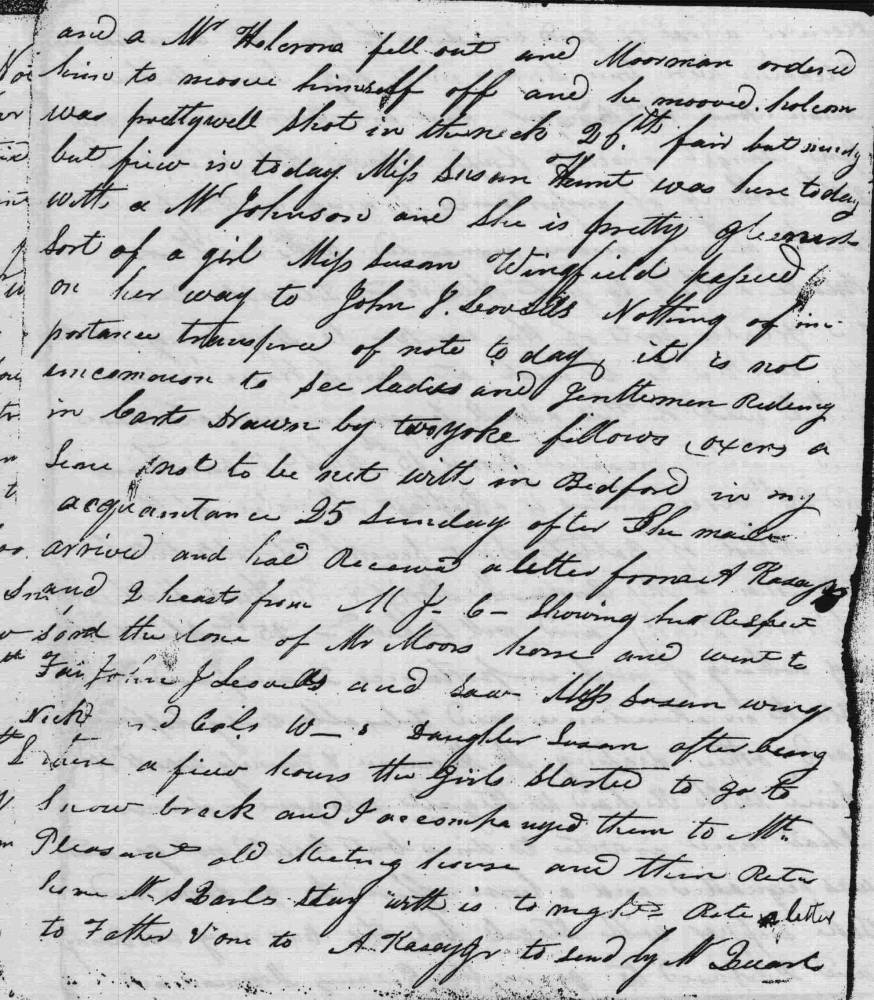 and a Mr Holcrona fell out and Moorman ordered
him to moove himself off and he mooved. holcom
was prettywell Shot in the neck 26th fair but
but fiew in today. Miss Susan Hunt was here today
with a Mr Johnson and She is pretty
Sort of a girl Miss Susan Wingfield passed
on her way to John J. Leovells Nothing of im-
portance transpired of note to day, it is not
uncommon to See ladies and Gentlemen Rideing
in Carts Drawn by two yoke fellows (oxens a
Sene not to be met with in Bedford in my
acquantance 25 Sunday after The maile
arrived and had Received a letter from A Kasey Jr
and 2 hearts from M J- C- Showing her Respect
the lone of Mr Moors horse and went to
John J Leovells and Saw Miss Susan wing
Cols W- s Daughter Susan after being
a fiew hours the Girls Started to go to
Snow brack and I accompanyed them to Mt
Pleasant old Meeting house and then Retu
home Mr Quarls Stay with is to night Rote a letter
to Father & one to A Kasey Jr to Send by Mr Quarls